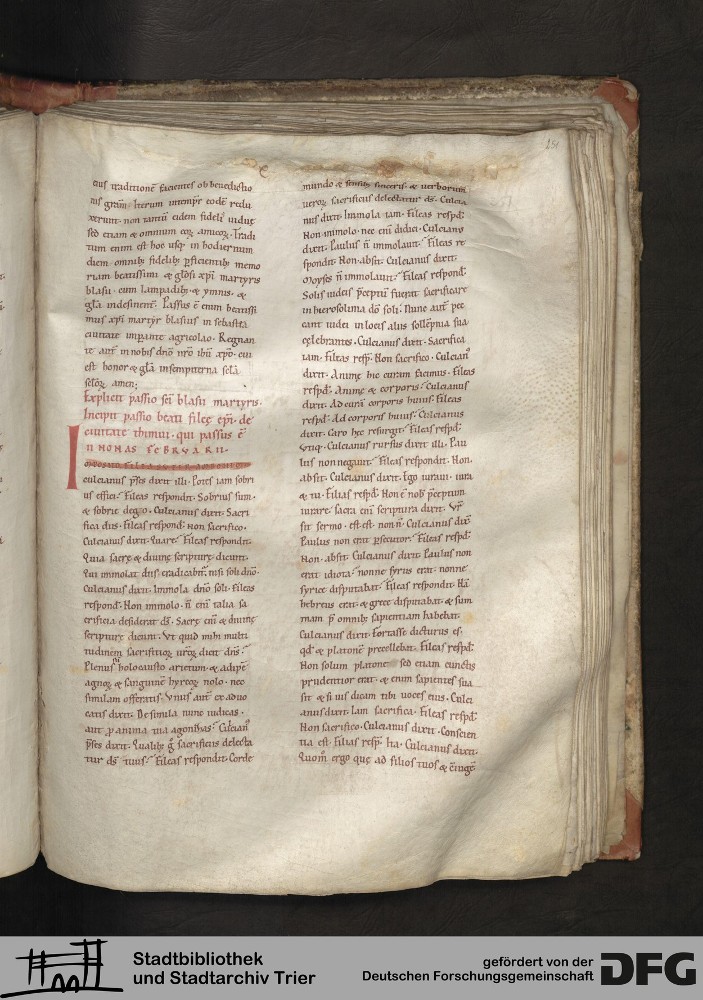 251
eius traditionẽ facientes ob benedictio
nis gram̃. Iterum intemp̃r eodẽ redu
xerunt. non tantũ eidem fideli uidue
sed etiam & omnium eoꝝ amicoꝝ. Tradi
tum enim est hoc usq; in hodiernum
diem omnib; fidelib; ꝑficientib; memo
riam beatissimi & glõsi xp̃i martyris
blasii. cum lampadib; & ymnis. &
glã indesinent̃. Passus ẽ enim beatissi
mus xp̃i martyr blasius in sebastea
ciuitate imꝑante agricolao. Regnan
te aut̃ in nobis dnõ nr̃o ihũ xp̃o. cui
est honor & glã in sempiterna sc̃la
sc̃loꝝ. amen;
Explicit passio sc̃i blasii martyris.
Incipit passio beati fileę ep̃i. de
ciuitate thimui. qui passus ẽ
II NONAS FEBRVARII.
culcianus p̃ses dixit illi. Potes iam sobri
us effici. Fileas respondit. Sobrius sum.
& sobrie dego. Culcianus dixit. Sacri
fica diis. Fileas respond̃. Non sacrifico.
Culcianus dixit. Quare. Fileas respondit.
Quia sacrę & diuinę scripturę dicunt.
Qui immolat diis eradicabit̃. nisi soli dnõ.
Culcianus dixit. Immola dnõ soli. Fileas
respond̃. Non immolo. ñ eni̅ talia sa
crificia desiderat ds̃. Sacrę eni̅ & diuinę
scripturę dicunt. Vt quid mihi multi
tudinem sacrificioꝝ ur̃oꝝ dicit dñs.
Plenus holocausto arietum. & adipẽ
agnoꝝ & sanguinẽ hyrcoꝝ nolo. nec
similam offeratis. Vnus aut̃ ex aduo
catis dixit. De simila nunc iudicas.
aut ꝓ anima tua agonizas. Culcian⁹
p̃ses dixit. Qualib; g̃ sacrificiis delecta
tur ds̃ tuus. Fileas respondit. Corde
mundo & sensib; sinceris. & uerborum
ueroꝝ sacrificiis delectatur ds̃. Culcia
nus dixit. Immola iam. Fileas resp̃d.
Non immolo. nec eni̅ didici. Culcianꝰ
dixit. Paulus ñ immolauit. Fileas re
spondit. Non. absit. Culcianus dixit.
Moyses ñ immolauit. Fileas respond̃.
Solis iudeis p̃ceptũ fuerat sacrificare
in hierosolima dõ soli. Nunc aut̃ pec
cant iudei in locis aliis sollẽpnia sua
cęlebrantes. Culcianus dixit. Sacrifica
iam. Fileas resp̃. Non sacrifico. Culcian⁹
dixit. Animę hic curam facimus. Fileas
resp̃d. Animę & corporis. Culcianus
dixit. Ad curã corporis huius. Fileas
resp̃d. Ad corporis huius. Culcianus
dixit. Caro hec resurgit. Fileas resp̃d.
Vtiq;. Culcianus rursus dixit illi. Pau
lus non negauit. Fileas respondit. Non.
absit. Culcianus dixit. Ego iuraui. iura
& tu. Fileas resp̃d. Non ẽ nob̃ p̃ceptum
iurare. Sacra eni̅ scriptura dixit. Vr̃
sit sermo. est. est. non ñ. Culcianus dix̃
Paulus non erat ꝑsecutor. Fileas resp̃d.
Non. absit. Culcianus dixit. Paulus non
erat idiota. nonne syrus erat. nonne
syrice disputabat. Fileas respondit. Nã
hebreus erat. & grece disputabat. & sum
mam p̃ omnib; sapientiam habebat.
Culcianus dixit. Fortasse dicturus es.
qd̃ & platonẽ precellebat. Fileas resp̃d.
Non solum platonẽ. sed etiam cunctis
prudentior erat. & enim sapientes sua
sit. & si uis dicam tibi uoces eius. Culci
anus dixit. Iam sacrifica. Fileas resp̃d.
Non sacrifico. Culcianus dixit. Conscien
tia est. Fileas resp̃. Ita. Culcianus dixit.
Quom̃ ergo quę ad filios tuos & c̃iugẽ
Stadtbibliothek
und Stadtarchiv Trier
gefördert von der
Deutschen Forschungsgemeinschaft
DFG